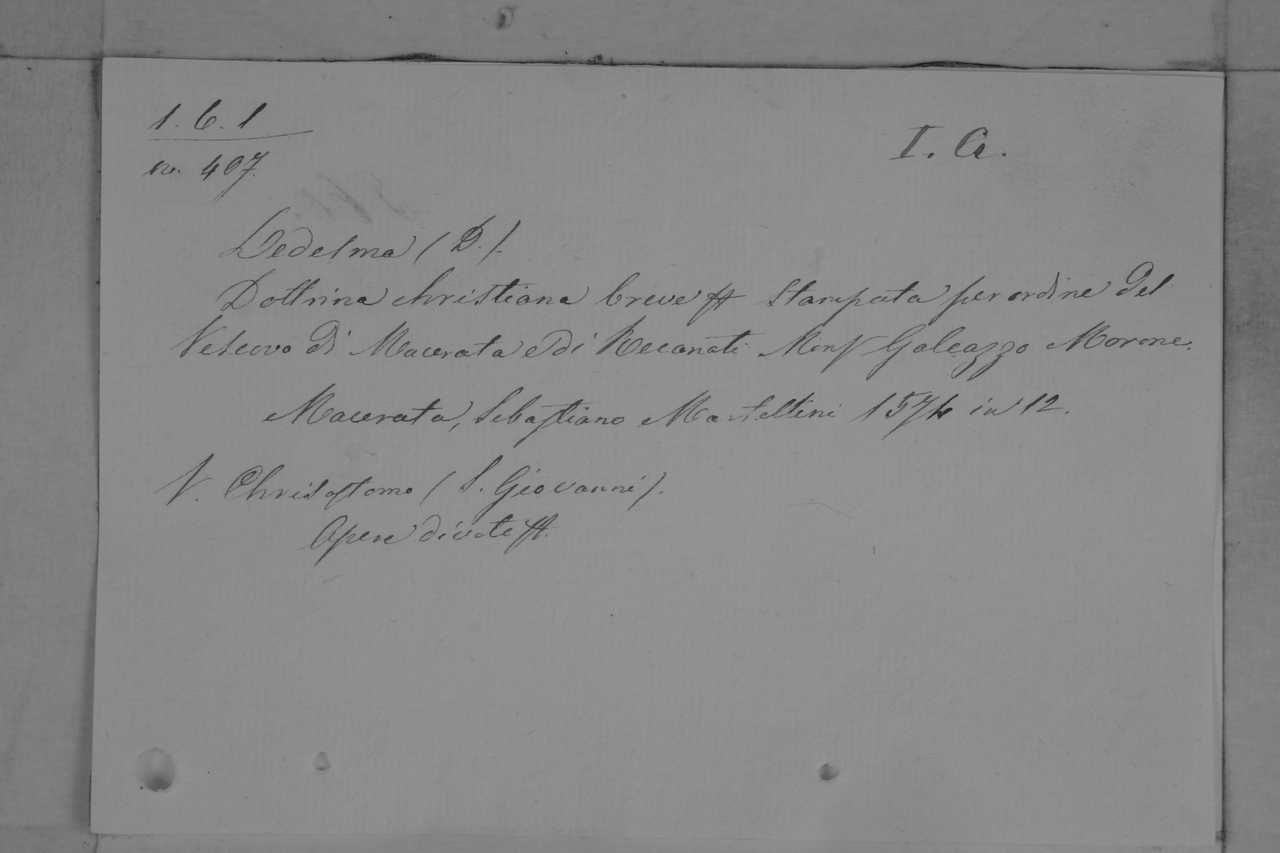 1. 6. 1
I. G.
no. 407.
Ledesma (D.).
Dottrina christiana breve ff Stampata per ordine del
Vescovo di Macerata e di Recanati Monsr Galeazzo Morone.
Macerata, Sebastiano Martellini 1574 in 12.
V. Chrisostomo (S. Giovanni).
Opere divote ff.